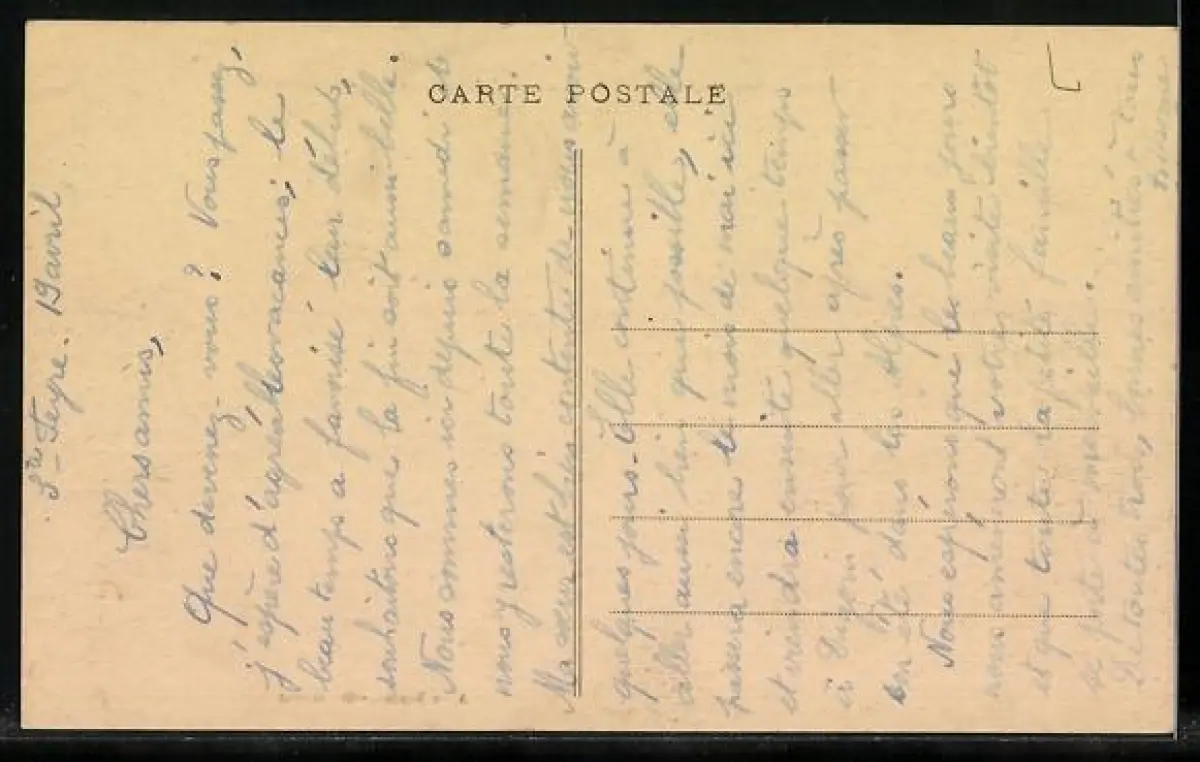 CARTE POSTALE
19 avril
Chers amis,
Que devenez-vous? Vous passez,
j'espère d'agréables vacances, le
beau temps a favorisé leur début,
souhaitons que la fin soit aussi belle.
Nous sommes ici depuis samedi
nous y resterons toute la semaine.
Ma sœur est
quelques jours. Elle continue à
aller aussi bien que possible, elle
passera encore le mois de mai ici
et viendra ensuite quelque temps
à Dijon pour aller après passer
en été dans les Alpes.
Nous espérons que les beaux jours
nous amèneront votre visite bientôt
et que toute la petite famille
se porte à merveille.
De toutes trois, bonnes amitiés à tous